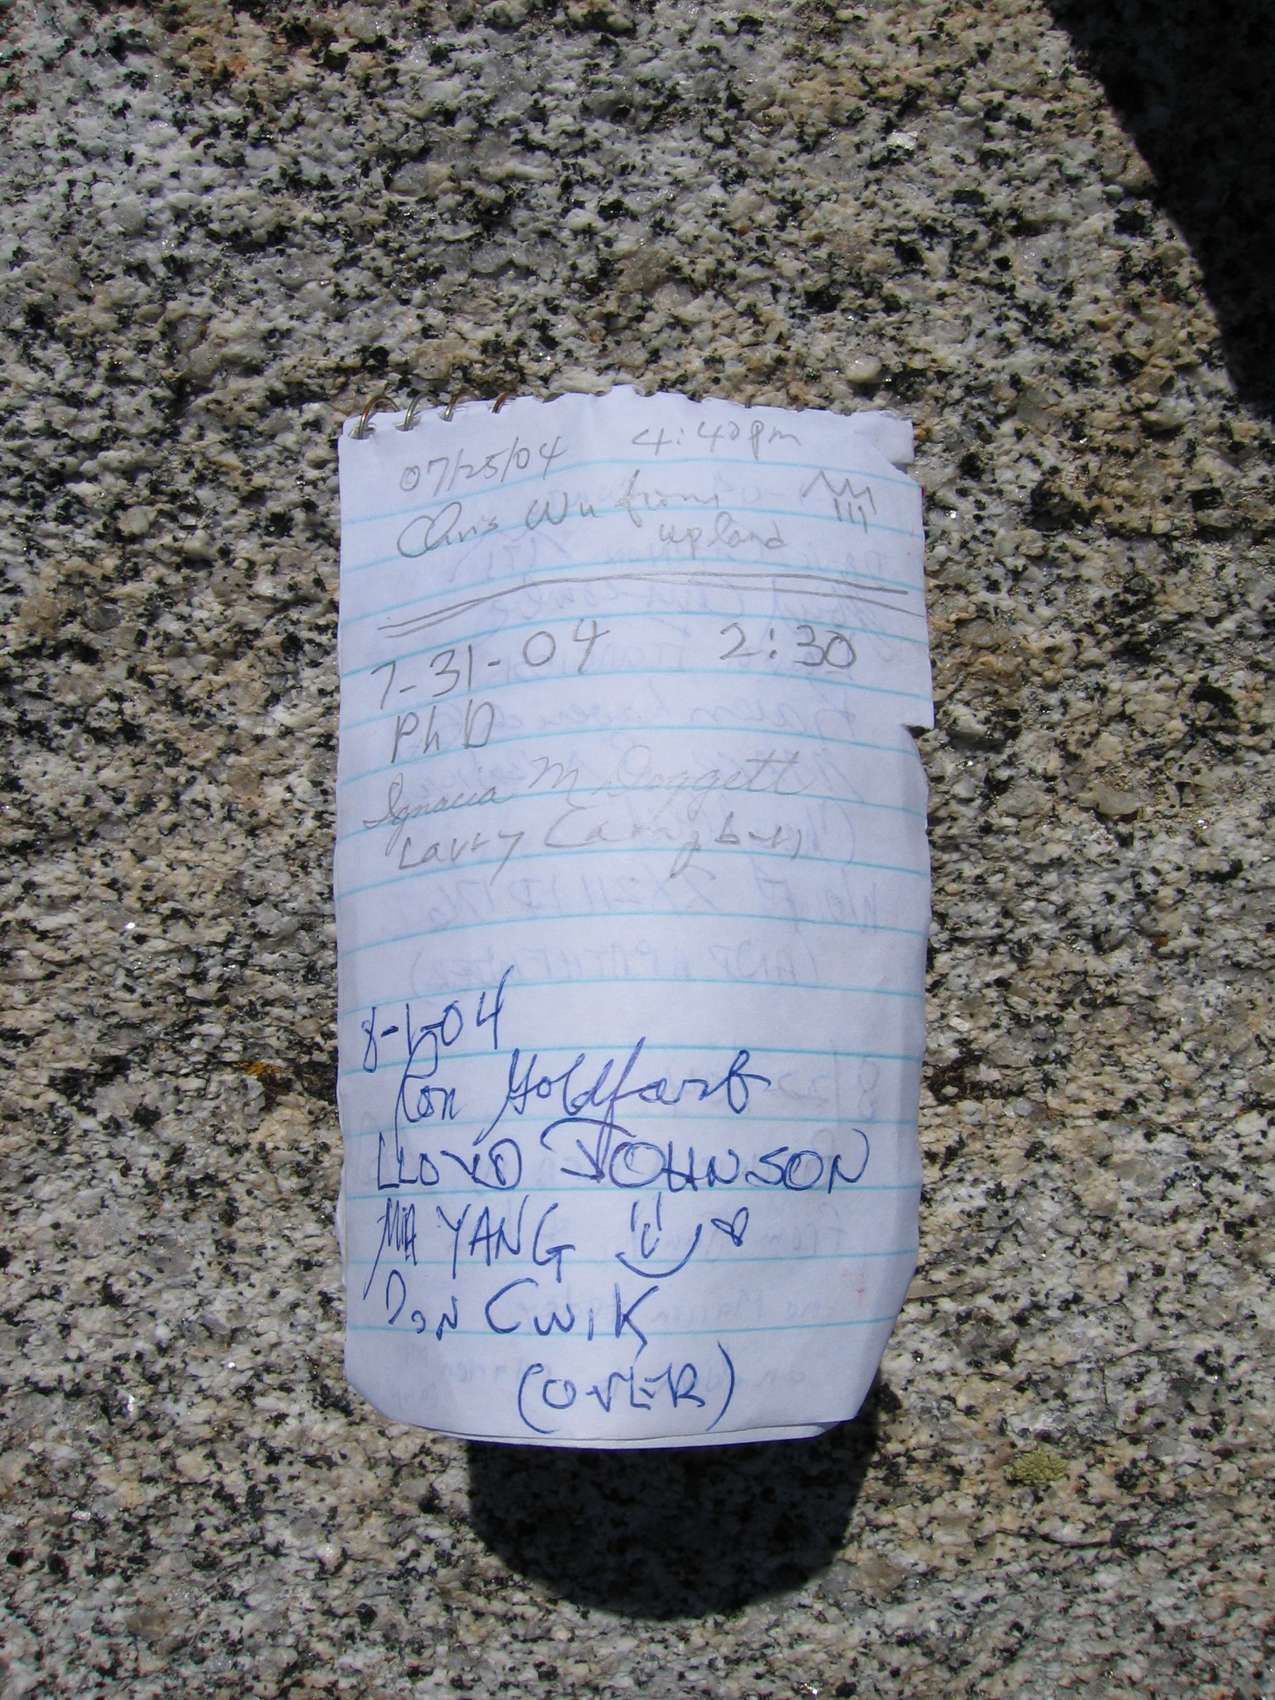 07/25/04 4:40pm
Chris Wu from
upland
7-31-04 2:30
PhD
Ignacia M Daggett
Larry
8-1-04
Ron Goldfarb
LLOYD JOHNSON
MIA YANG
DON CWIK
(OVER)